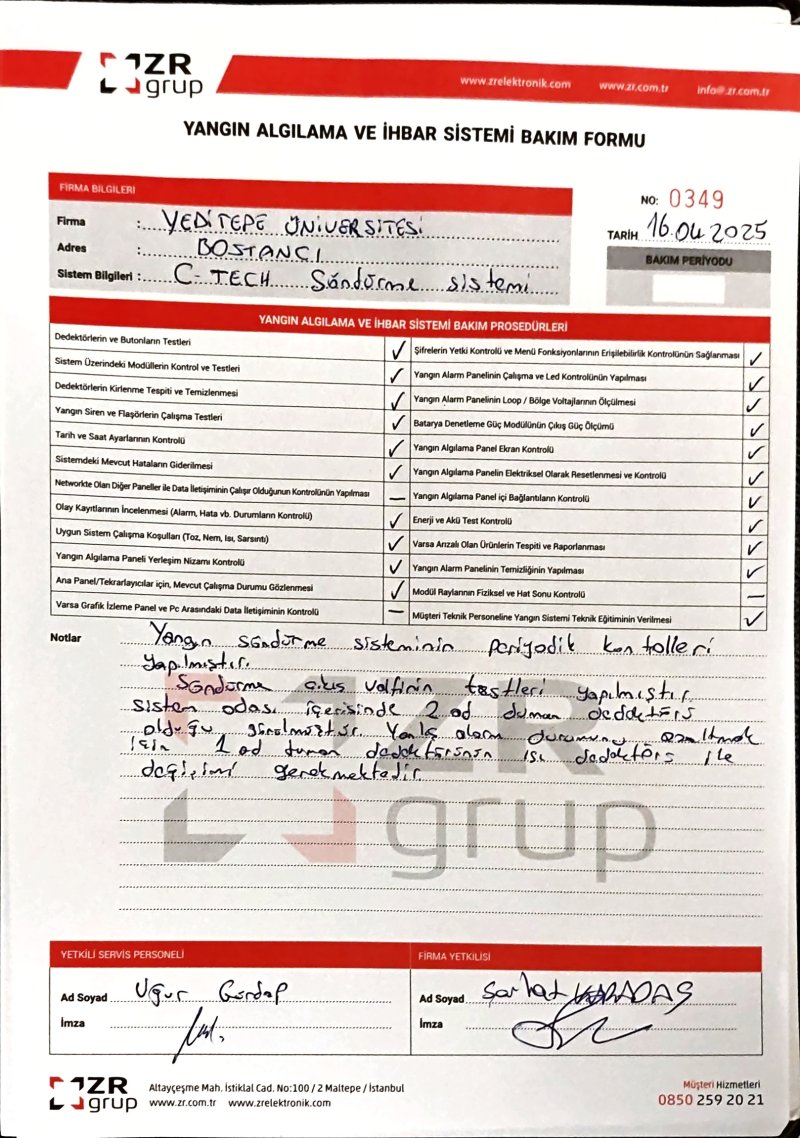 ZR
grup
www.zrelektronik.com www.zr.com.tr info@.zr.com.tr
YANGIN ALGILAMA VE İHBAR SİSTEMİ BAKIM FORMU
FİRMA BİLGİLERİ
NO: 0349
Firma : YEDİTEPE ÜNİVERSİTESİ
TARİH 16.04.2025
Adres : BOSTANCI
BAKIM PERİYODU
Sistem Bilgileri : C-TECH Söndürme sistemi
YANGIN ALGILAMA VE İHBAR SİSTEMİ BAKIM PROSEDÜRLERİ
Dedektörlerin ve Butonların Testleri ✓ Şifrelerin Yetki Kontrolü ve Menü Fonksiyonlarının Erişilebilirlik Kontrolünün Sağlanması ✓
Sistem Üzerindeki Modüllerin Kontrol ve Testleri ✓ Yangın Alarm Panelinin Çalışma ve Led Kontrolünün Yapılması ✓
Dedektörlerin Kirlenme Tespiti ve Temizlenmesi ✓ Yangın Alarm Panelinin Loop / Bölge Voltajlarının Ölçülmesi ✓
Yangın Siren ve Flaşörlerin Çalışma Testleri ✓ Batarya Denetleme Güç Modülünün Çıkış Güç Ölçümü ✓
Tarih ve Saat Ayarlarının Kontrolü ✓ Yangın Algılama Panel Ekran Kontrolü ✓
Sistemdeki Mevcut Hataların Giderilmesi ✓ Yangın Algılama Panelin Elektriksel Olarak Resetlenmesi ve Kontrolü ✓
Networkte Olan Diğer Paneller ile Data İletişiminin Çalışır Olduğunun Kontrolünün Yapılması — Yangın Algılama Panel içi Bağlantıların Kontrolü ✓
Olay Kayıtlarının İncelenmesi (Alarm, Hata vb. Durumların Kontrolü) ✓ Enerji ve Akü Test Kontrolü ✓
Uygun Sistem Çalışma Koşulları (Toz, Nem, Isı, Sarsıntı) ✓ Varsa Arızalı Olan Ürünlerin Tespiti ve Raporlanması ✓
Yangın Algılama Paneli Yerleşim Nizamı Kontrolü ✓ Yangın Alarm Panelinin Temizliğinin Yapılması ✓
Ana Panel/Tekrarlayıcılar için, Mevcut Çalışma Durumu Gözlenmesi ✓ Modül Raylarının Fiziksel ve Hat Sonu Kontrolü —
Varsa Grafik İzleme Panel ve Pc Arasındaki Data İletişiminin Kontrolü — Müşteri Teknik Personeline Yangın Sistemi Teknik Eğitiminin Verilmesi ✓
Notlar Yangın söndürme sisteminin periyodik kontolleri
yapılmıştır.
Söndürme çıkış valfinin testleri yapılmıştır
sistem odası içerisinde 2 ad duman dedektörü
olduğu görülmüştür. Yanlış alarm durumunu azaltmak
için 1 ad duman dedektörünün ısı dedektörü ile
değişimi gerekmektedir.
ZR
grup
YETKİLİ SERVİS PERSONELİ FİRMA YETKİLİSİ
Ad Soyad Uğur Ad Soyad KARADAŞ
İmza İmza
ZR
grup
Altayçeşme Mah. İstiklal Cad. No:100 / 2 Maltepe / İstanbul
www.zr.com.tr www.zrelektronik.com
Müşteri Hizmetleri
0850 259 20 21